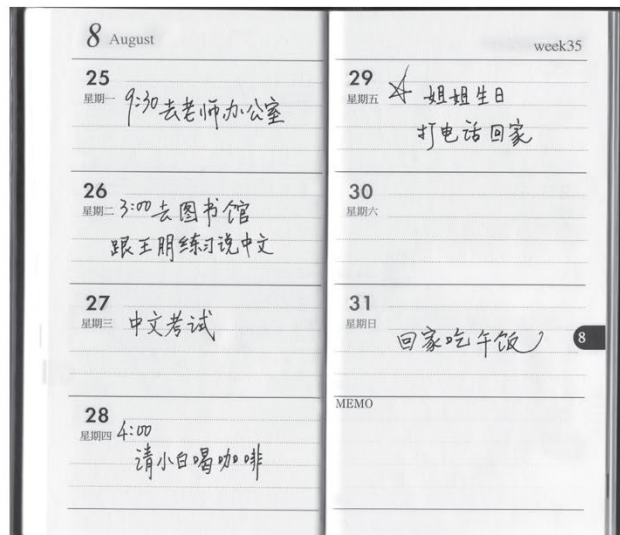 8 August
25
星期一 9:30去老师办公室
26
星期二 3:00去图书馆
跟王朋练习说中文
27
星期三 中文考试
28
星期四 4:00
请小白喝咖啡
week35
29
星期五 姐姐生日
打电话回家
30
星期六
31
星期日
回家吃午饭
8
MEMO